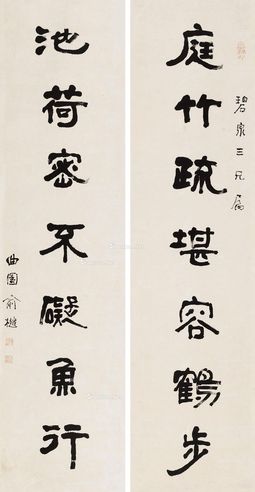 碧泉三兄属
庭竹疏堪容鶴步
池荷密不礙魚行
曲園俞樾